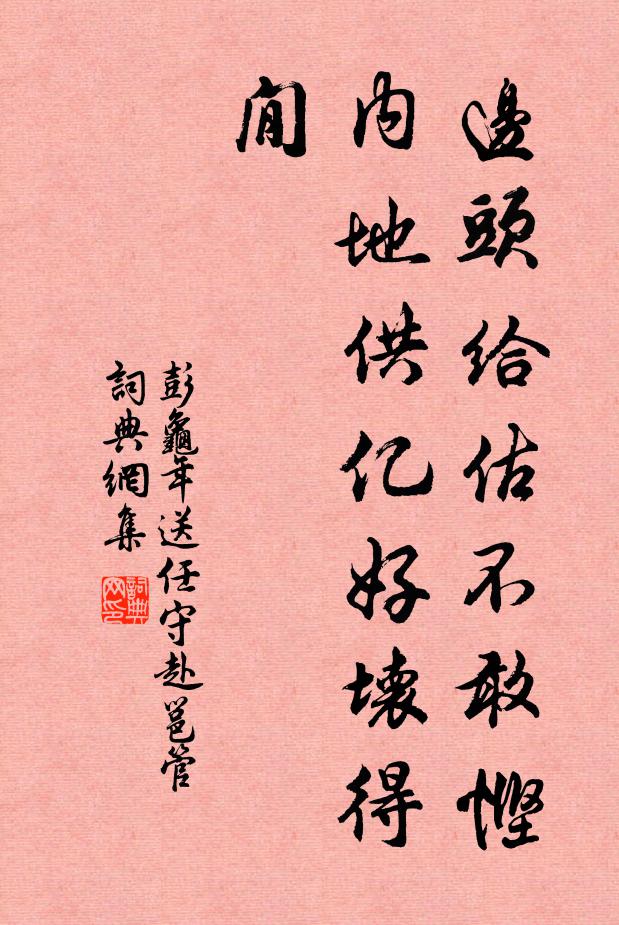 邊頭給估不敢慳
内地供亿好壊得
閒
彭龜年送任守赴邕管
詞典網集
詞典
网印